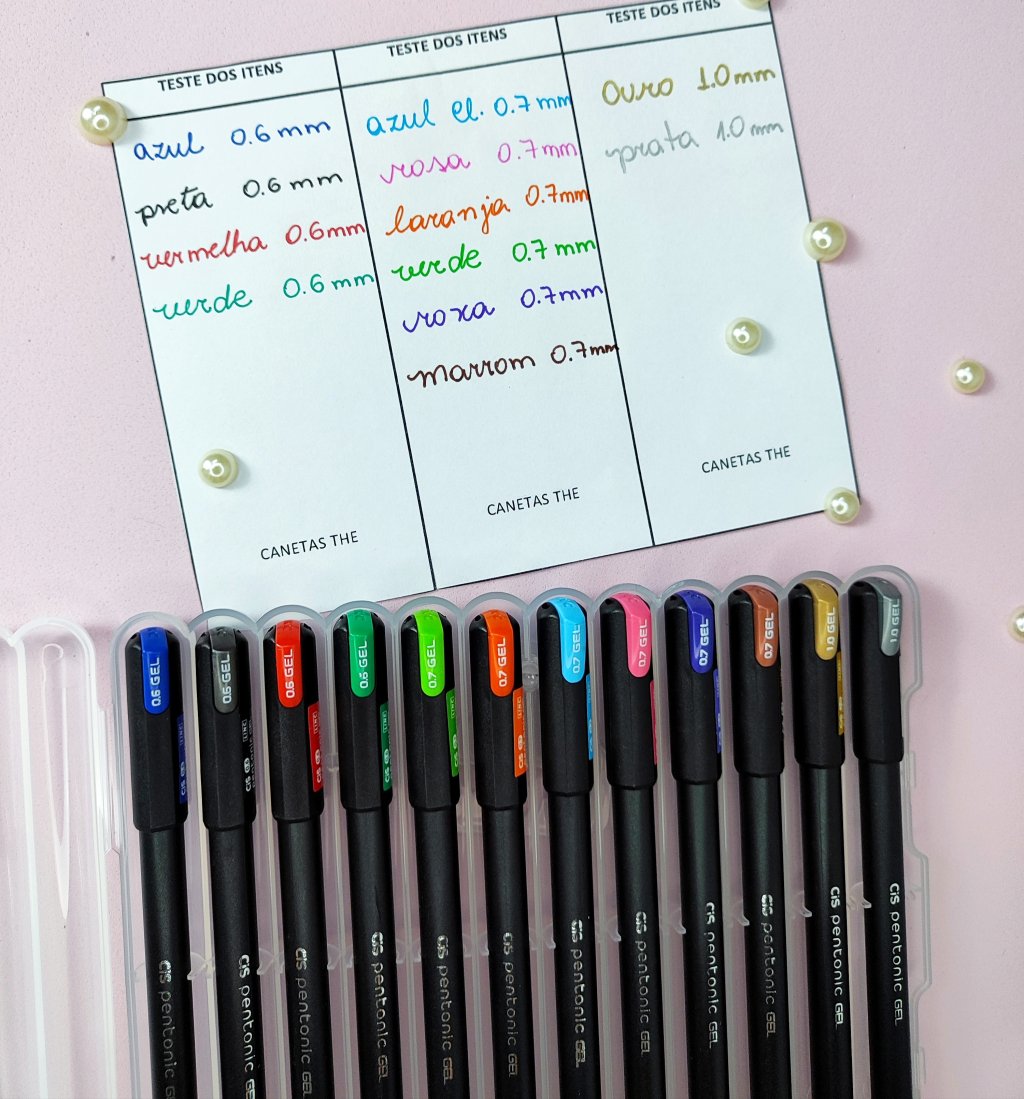 TESTE DOS ITENS
azul 0.6 mm
preta 0.6 mm
vermelha 0.6mm
verde 0.6 mm
CANETAS THE
TESTE DOS ITENS
azul el. 0.7 mm
rosa 0.7mm
laranja 0.7mm
verde 0.7 mm
roxa 0.7mm
marrom 0.7mm
CANETAS THE
TESTE DOS ITENS
Ouro 1.0mm
prata 1.0 mm
CANETAS THE
0.6 GEL
0.6 GEL
0.6 GEL
0.6 GEL
0.7 GEL
0.7 GEL
0.7 GEL
0.7 GEL
0.7 GEL
0.7 GEL
1.0 GEL
1.0 GEL
CiS pentonic G
CiS pentonic GE
CiS pentonic GEL
CiS pentonic GEL
CiS pentonic GEL
CiS pentonic GEL
CiS pentonic GEL
CiS pentonic GEL
CiS pentonic GEL
CiS pentonic GEL
CiS pentonic GEL
CiS pentonic GEL